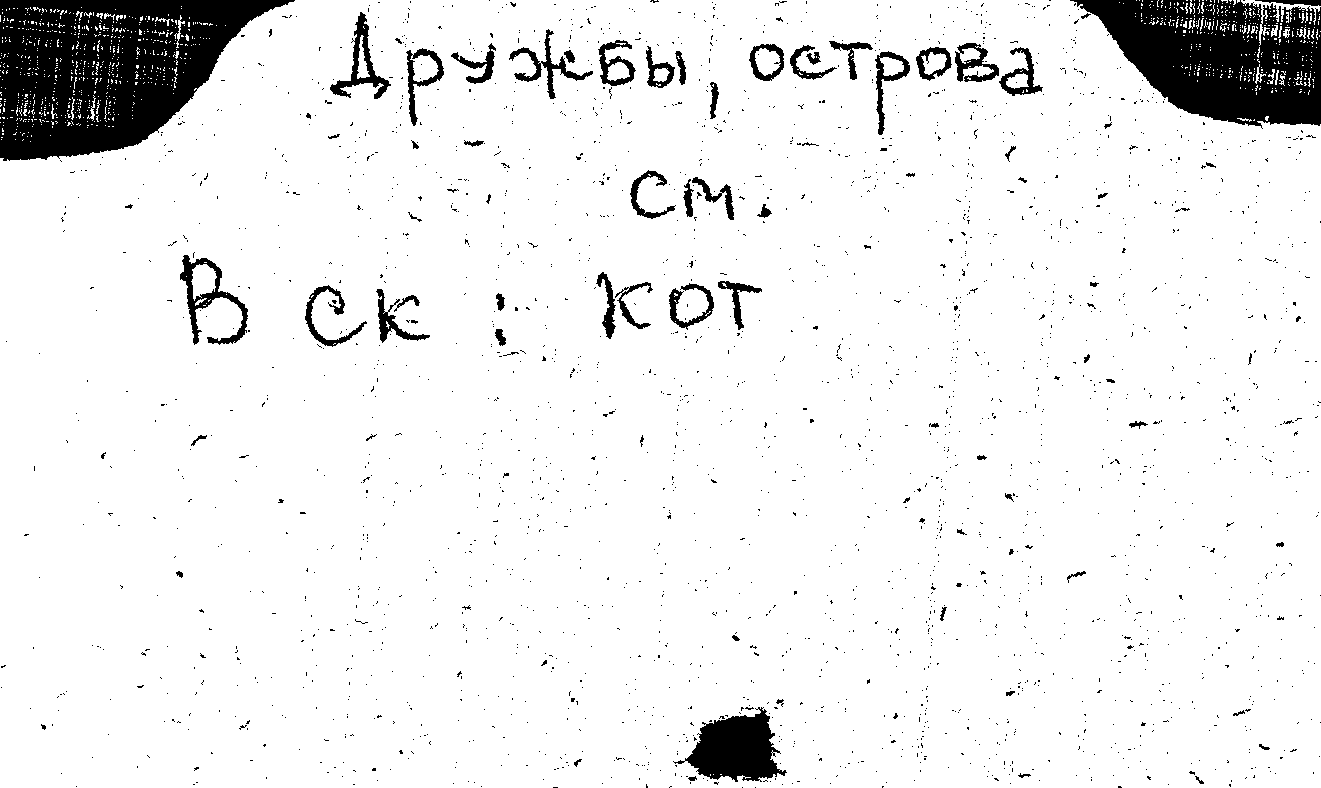 Дружбы, острова
см.
В ск : кот